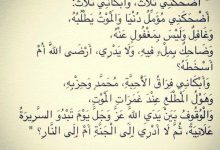 أضحكني ثلاث، وأبكاني ثلاث:
أضحكني مؤمل دنيا والموت يطلبه،
وغافل وليس بمغفول عنه،
وضاحك بملء فيه، ولا يدري، أرضى الله أم أسخطه؟
وأبكاني فراق الأحبة، محمد وحزبه،
وهول المطلع عند غمرات الموت،
والوقوف بين يدي الله عز وجل يوم تبدو السريرة علانية، ثم لا أدري إلى الجنة أم إلى النار؟ "